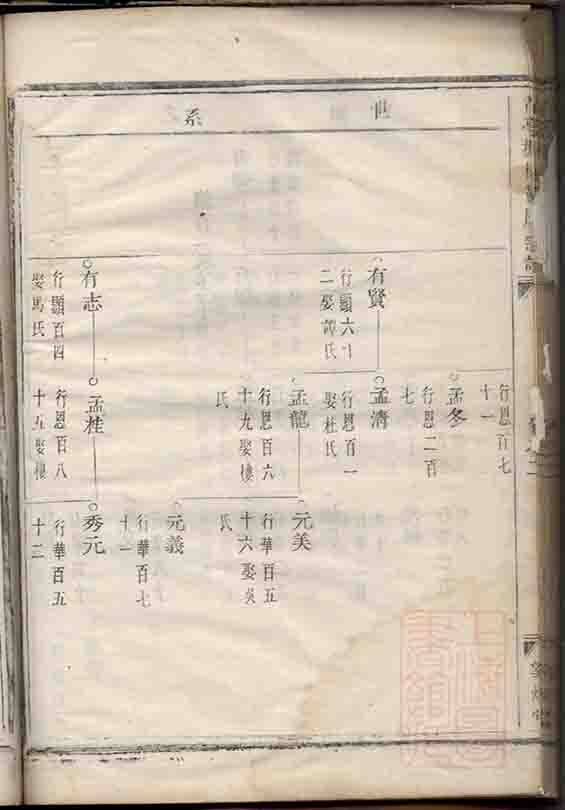 世系
行恩百七
十一
孟冬
行恩二百
七
有賢
行顯六十
二娶譚氏
孟清
行恩百一
娶杜氏
孟龍
行恩百六
十九娶樓
氏
元美
行華百五
十六娶吳
氏
元義
行華百七
十一
有志
行顯百四
娶馬氏
孟桂
行恩百八
十五娶樓
秀元
行華百五
十二